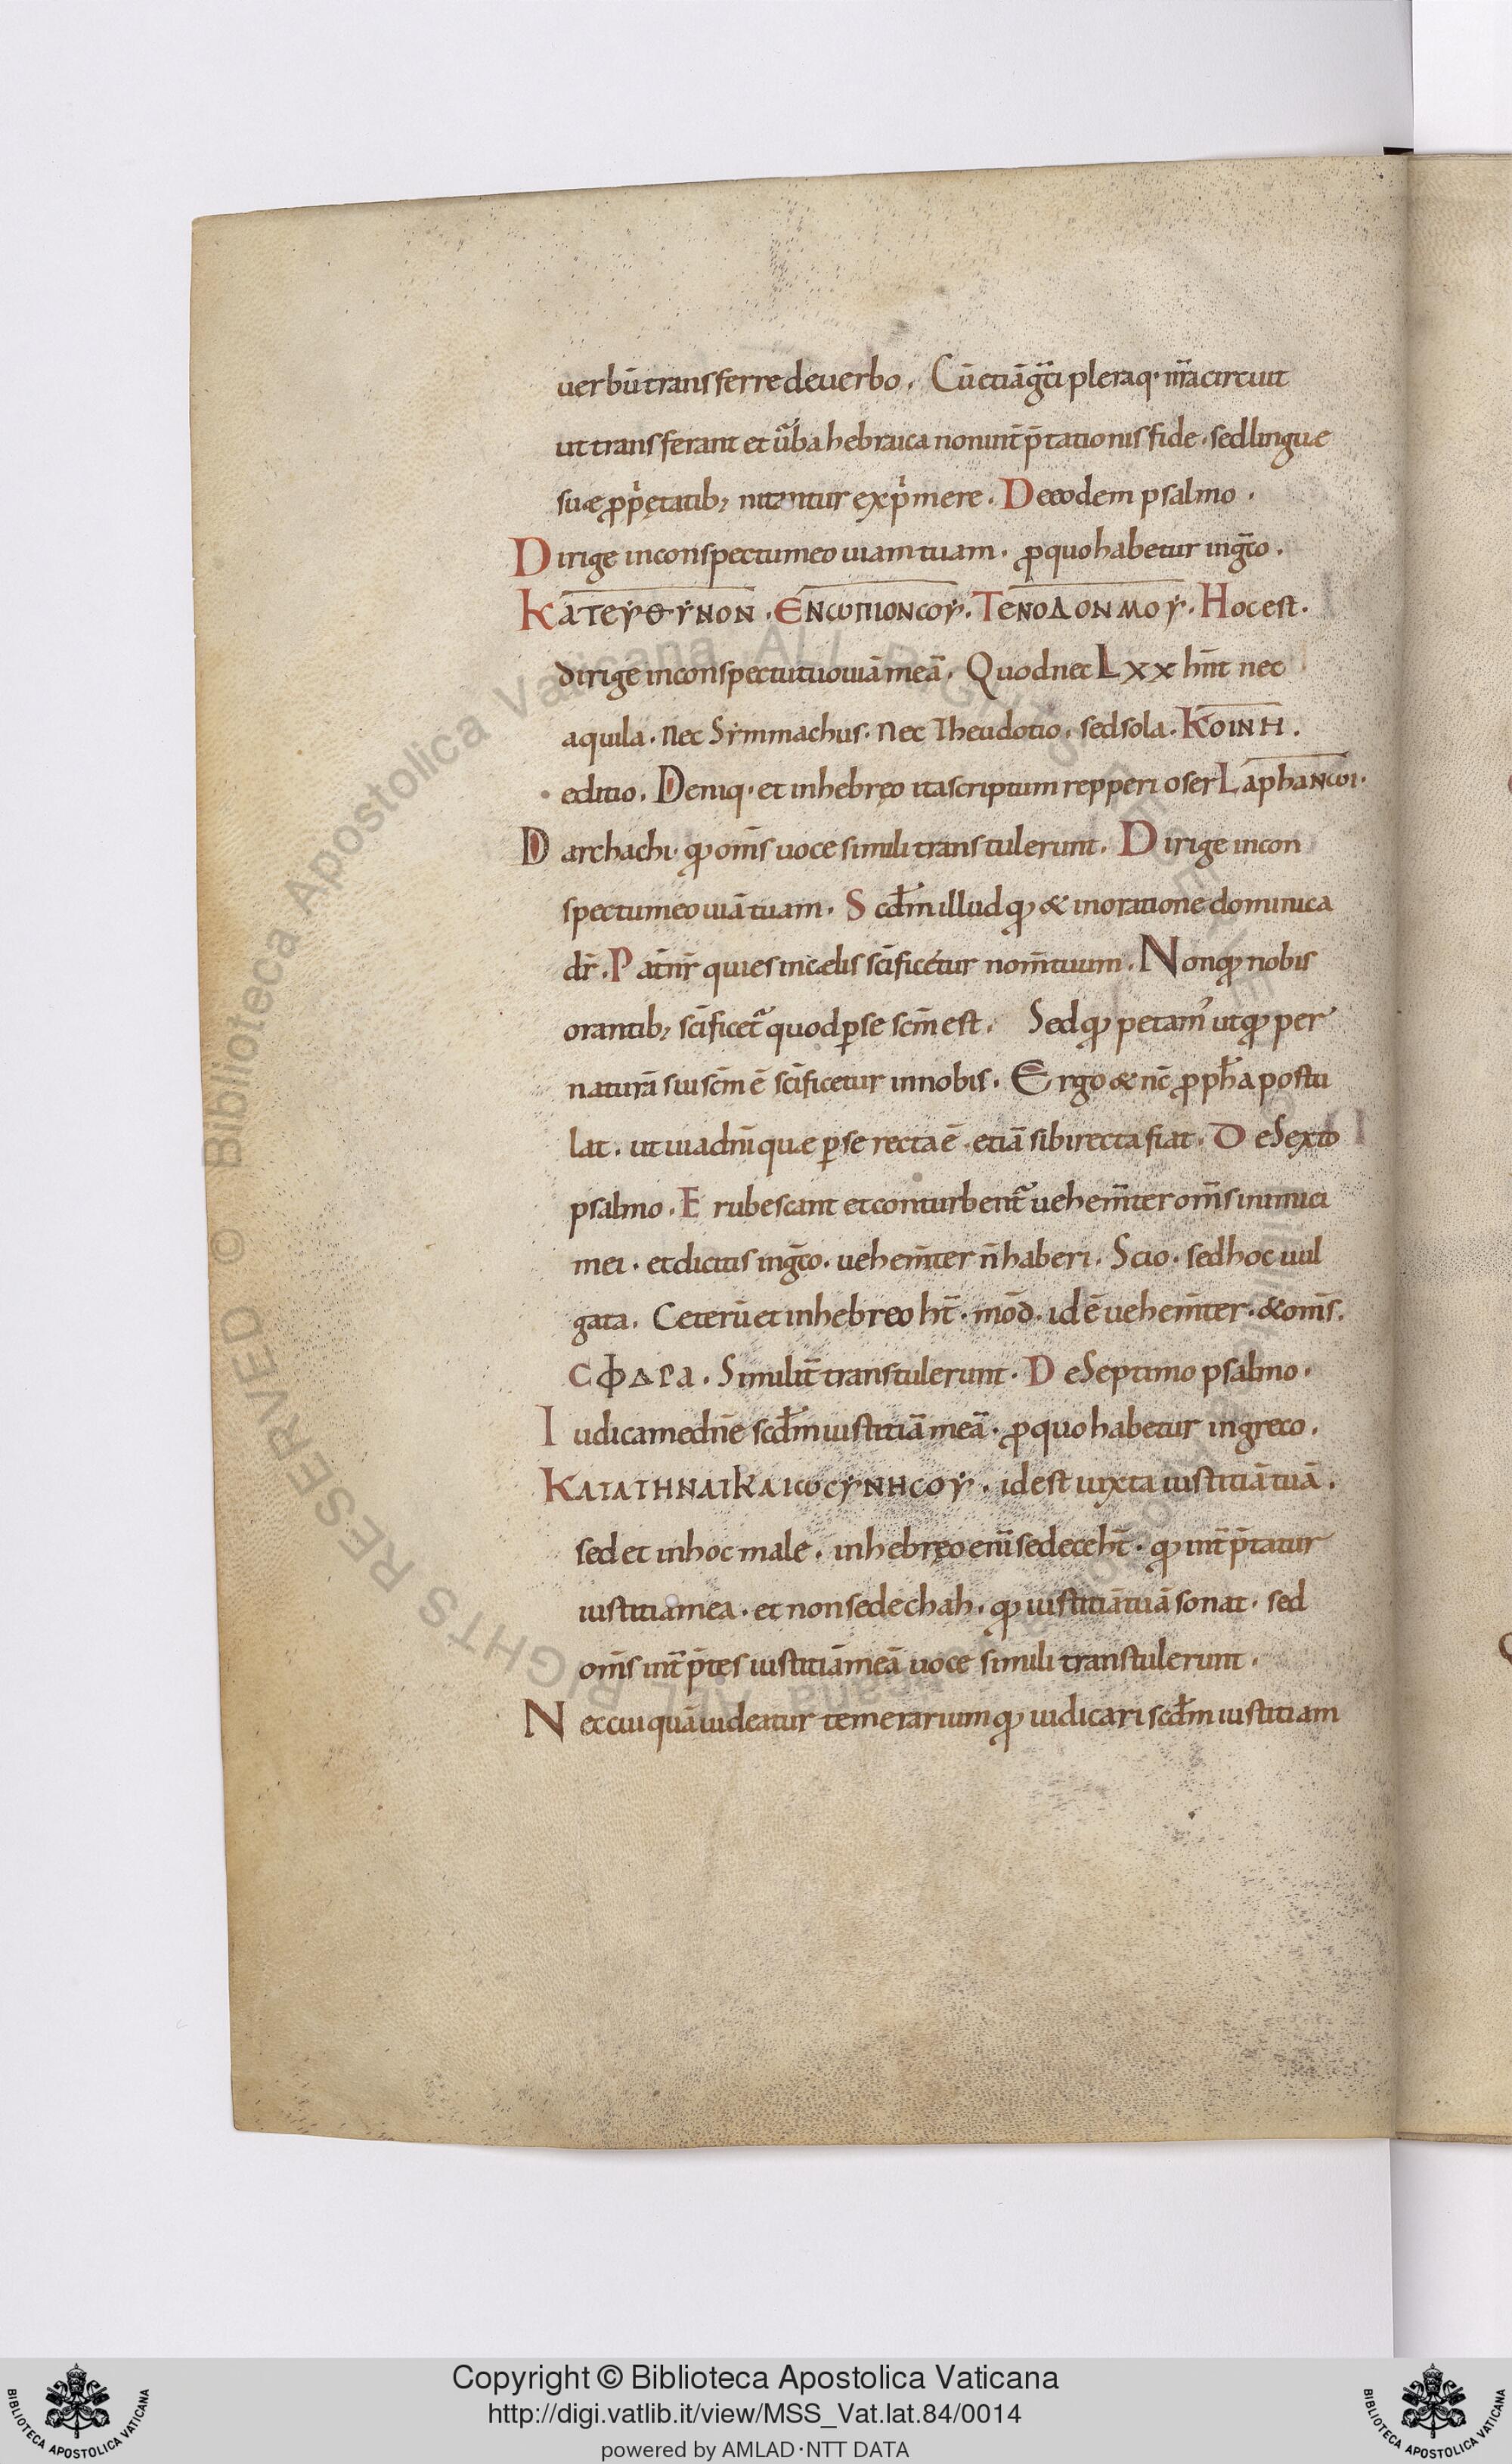 uerbū transferre deuerbo. Cū etiā gr̄ci pleraq· nr̄a circuit
ut transferant et ūba hebraica non int̄p̄tationis fide· sed linguæ
suæ pp̄ętatib; nitantur exp̄mere. De eodem psalmo·
Dirige inconspectu meo uiam tuam· p quo habetur ingr̄co.
ΚΑΤΕΥΘΥΝΟΝ· ΕΝCΩΠΙΟΝ CΟΥ· ΤΕΝ ΟΔΟΝ ΜΟΥ· Hoc est·
dirige inconspectu tuo uiā meā. Quod nec Lxx hn̄t nec
aquila· nec Sẏmmachus· nec Theudotio· sed sola· ΚΟΙΝΗ.
editio. Deniq· et inhebręo ita scriptum repperi oser Laphancωi·
Darchachi· qd om̄s uoce simili transtulerunt. Dirige incon
spectu meo uiā tuam· Scdm̄ illud qd & inoratione dominica
dr̄. Pat̄ nr̄ qui es incælis sc̄ificétur nom̄ tuum. Non qd nobis
orantib; sc̄ificet̄ quod p se sc̄m est. Sed qd petam' ut qd per
naturā sui sc̄m ē sc̄ificetur innobis. Ergo & nc̄ pph̄a postu
lat. ut uia dn̄i quæ p se recta ē etiā sibi recta fiat. De Sexto
psalmo. Erubescant et conturbent̄ uehem̄ter om̄s inimici
mei· et dicitis ingr̄co· uehem̄ter n̄ haberi. Scio· sed hoc uul
gata. Ceterū et inhebreo ht̄· mōd· id ē uehem̄ter· & om̄s.
CΦΔΡΑ. Similit̄ transtulerunt. De Septimo psalmo·
Iudica me dn̄e scdm̄ iustitiā meā· p quo habetur in greco.
ΚΑΤΑΤΗΝΔΙΚΑΙΩCΥΝΗCΟΥ. id est iuxta iustitiā tuā.
sed et inhoc male. inhebręo enī sedece ht̄· qd int̄p̄tatur
iustitia mea· et non sedechah· qd iustitiā tuā sonat· sed
om̄s int̄p̄tes iustitiā meā uoce simili transtulerunt.
Nec cui quā uideatur temerarium qd iudicari scdm̄ iustitiam
Copyright © Biblioteca Apostolica Vaticana
http://digi.vatlib.it/view/MSS_Vat.lat.84/0014
powered by AMLAD·NTT DATA